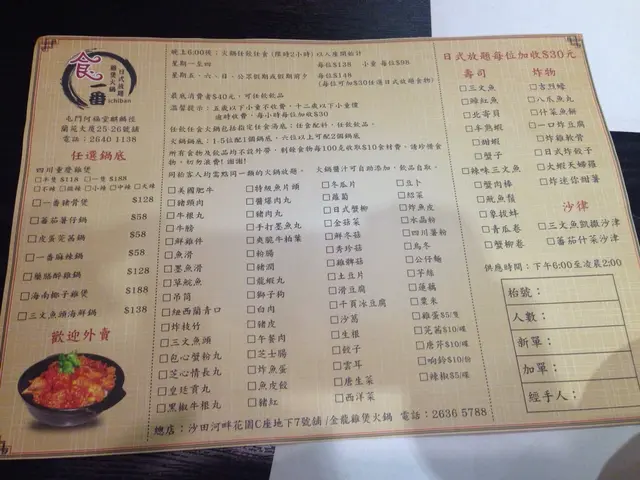 食
一番
雞煲火鍋
日式放題
ichiban
屯門阿福堂麒麟徑
蘭苑大廈25-26號舖
電話：2640 1138
任選鍋底
四川重慶雞煲
□半隻$118 □一隻$188
□不辣 □微辣 □小辣 □中辣 □大辣
□一番豬骨煲 $128
□蕃茄薯仔鍋 $58
□皮蛋芫茜鍋 $58
□一番麻辣鍋 $58
□藥膳醉雞鍋 $128
□海南椰子雞煲 $188
□三文魚頭海鮮鍋 $138
歡迎外賣
晚上6:00後：火鍋任飲任食 (限時2小時) 以人座開始計
星期一至四 每位$128 小童 每位$98
星期五、六、日、公眾假期或假期前夕 每位$148
(每位可加$30任選日式放題食物)
最底消費者$40元，可任飲飲品
溫馨提示：五歲以下小童不收費，十二歲以下小童價
逾時收費，每小時每位加收$30
任飲任食火鍋包括指定任食湯底；任食配料，任飲飲品。
火鍋鍋底：1-5位配1個鍋底，六位以上可配2個鍋底
所有食物及飲品均不設外帶，剩餘食物每100克收取$10食材費，請珍惜食
物，切勿浪費!謝謝!
同枱客人均需惠同一類的火鍋放題， 火鍋醬汁可自助添加，飲品自取。
□美國肥牛
□豬頭肉
□牛根丸
□牛膀
□鮮雞件
□魚滑
□墨魚滑
□草鯇魚
□吊筒
□紐西蘭青口
□炸枝竹
□三文魚頭
□包心蟹粉丸
□芝心情長丸
□皇廷貢丸
□黑椒牛根丸
□特級魚片頭
□醬爆肉丸
□豬肉丸
□手打墨魚丸
□爽脆牛柏葉
□粉腸
□豬潤
□龍蝦丸
□獅子狗
□白肉
□豬皮
□午餐肉
□芝士腸
□炸魚蛋
□魚皮餃
□豬紅
□冬瓜片
□蘿蔔
□日式蟹柳
□金菇菜
□鮮冬菇
□秀珍菇
□雞髀菇
□土豆片
□滑豆腐
□千頁冰豆腐
□沙葛
□生根
□餃子
□雲耳
□唐生菜
□西洋菜
□豆卜
□紹菜
□炸魚皮
□水晶粉
□四川薯粉
□烏冬
□公仔麵
□芋絲
□蓮藕
□粟米
□雞蛋$5/隻
□芫茜$10/碟
□唐芹$10/碟
□响鈴$10/份
□辣椒$5/碟
日式放題每位加收$30元
壽司
□三文魚
□鰭紅魚
□北寄貝
□半熟蝦
□甜蝦
□蟹子
□辣味三文魚
□蟹肉棒
□魷魚鬚
□象拔蚌
□青瓜卷
□蟹柳卷
炸物
□吉烈蠔
□八爪魚丸
□什菜魚餅
□一口炸豆腐
□炸雞軟骨
□日式炸餃子
□火蝦天婦羅
□炸迷你甜薯
沙律
□三文魚凱撒沙律
□蕃茄什菜沙津
供應時間：下午6:00至凌晨2:00
枱號：
人數：
新單：
加單：
經手人：
總店：沙田河畔花園C座地下7號舖/金龍雞煲火鍋 電話：2636 5788